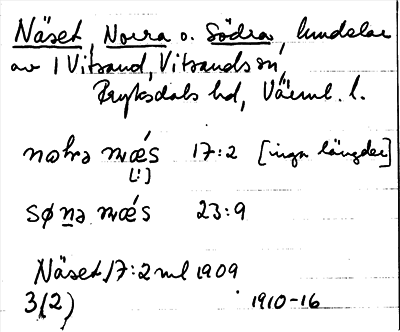 Näset, Norra o. Södra, hundelar
av 1 Vitsand, Vitsands sn,
Fryksdals hd, Värml. l.
næs 17:2 [inga längder]
[!]
næs 23:9
Näset 17:2 ml 1909
3(2) 1910-16